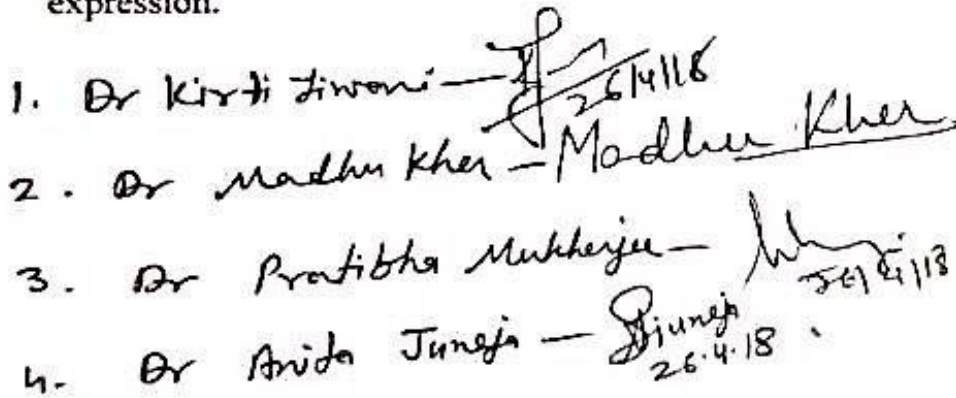 expression.
1. Dr Kirti Tiwari — 26/4/18
2. Dr Madhu Kher — Madhu Kher
3. Dr Pratibha Mukherjee — 26/4/18
4. Dr Anita Juneja — Juneja
26.4.18